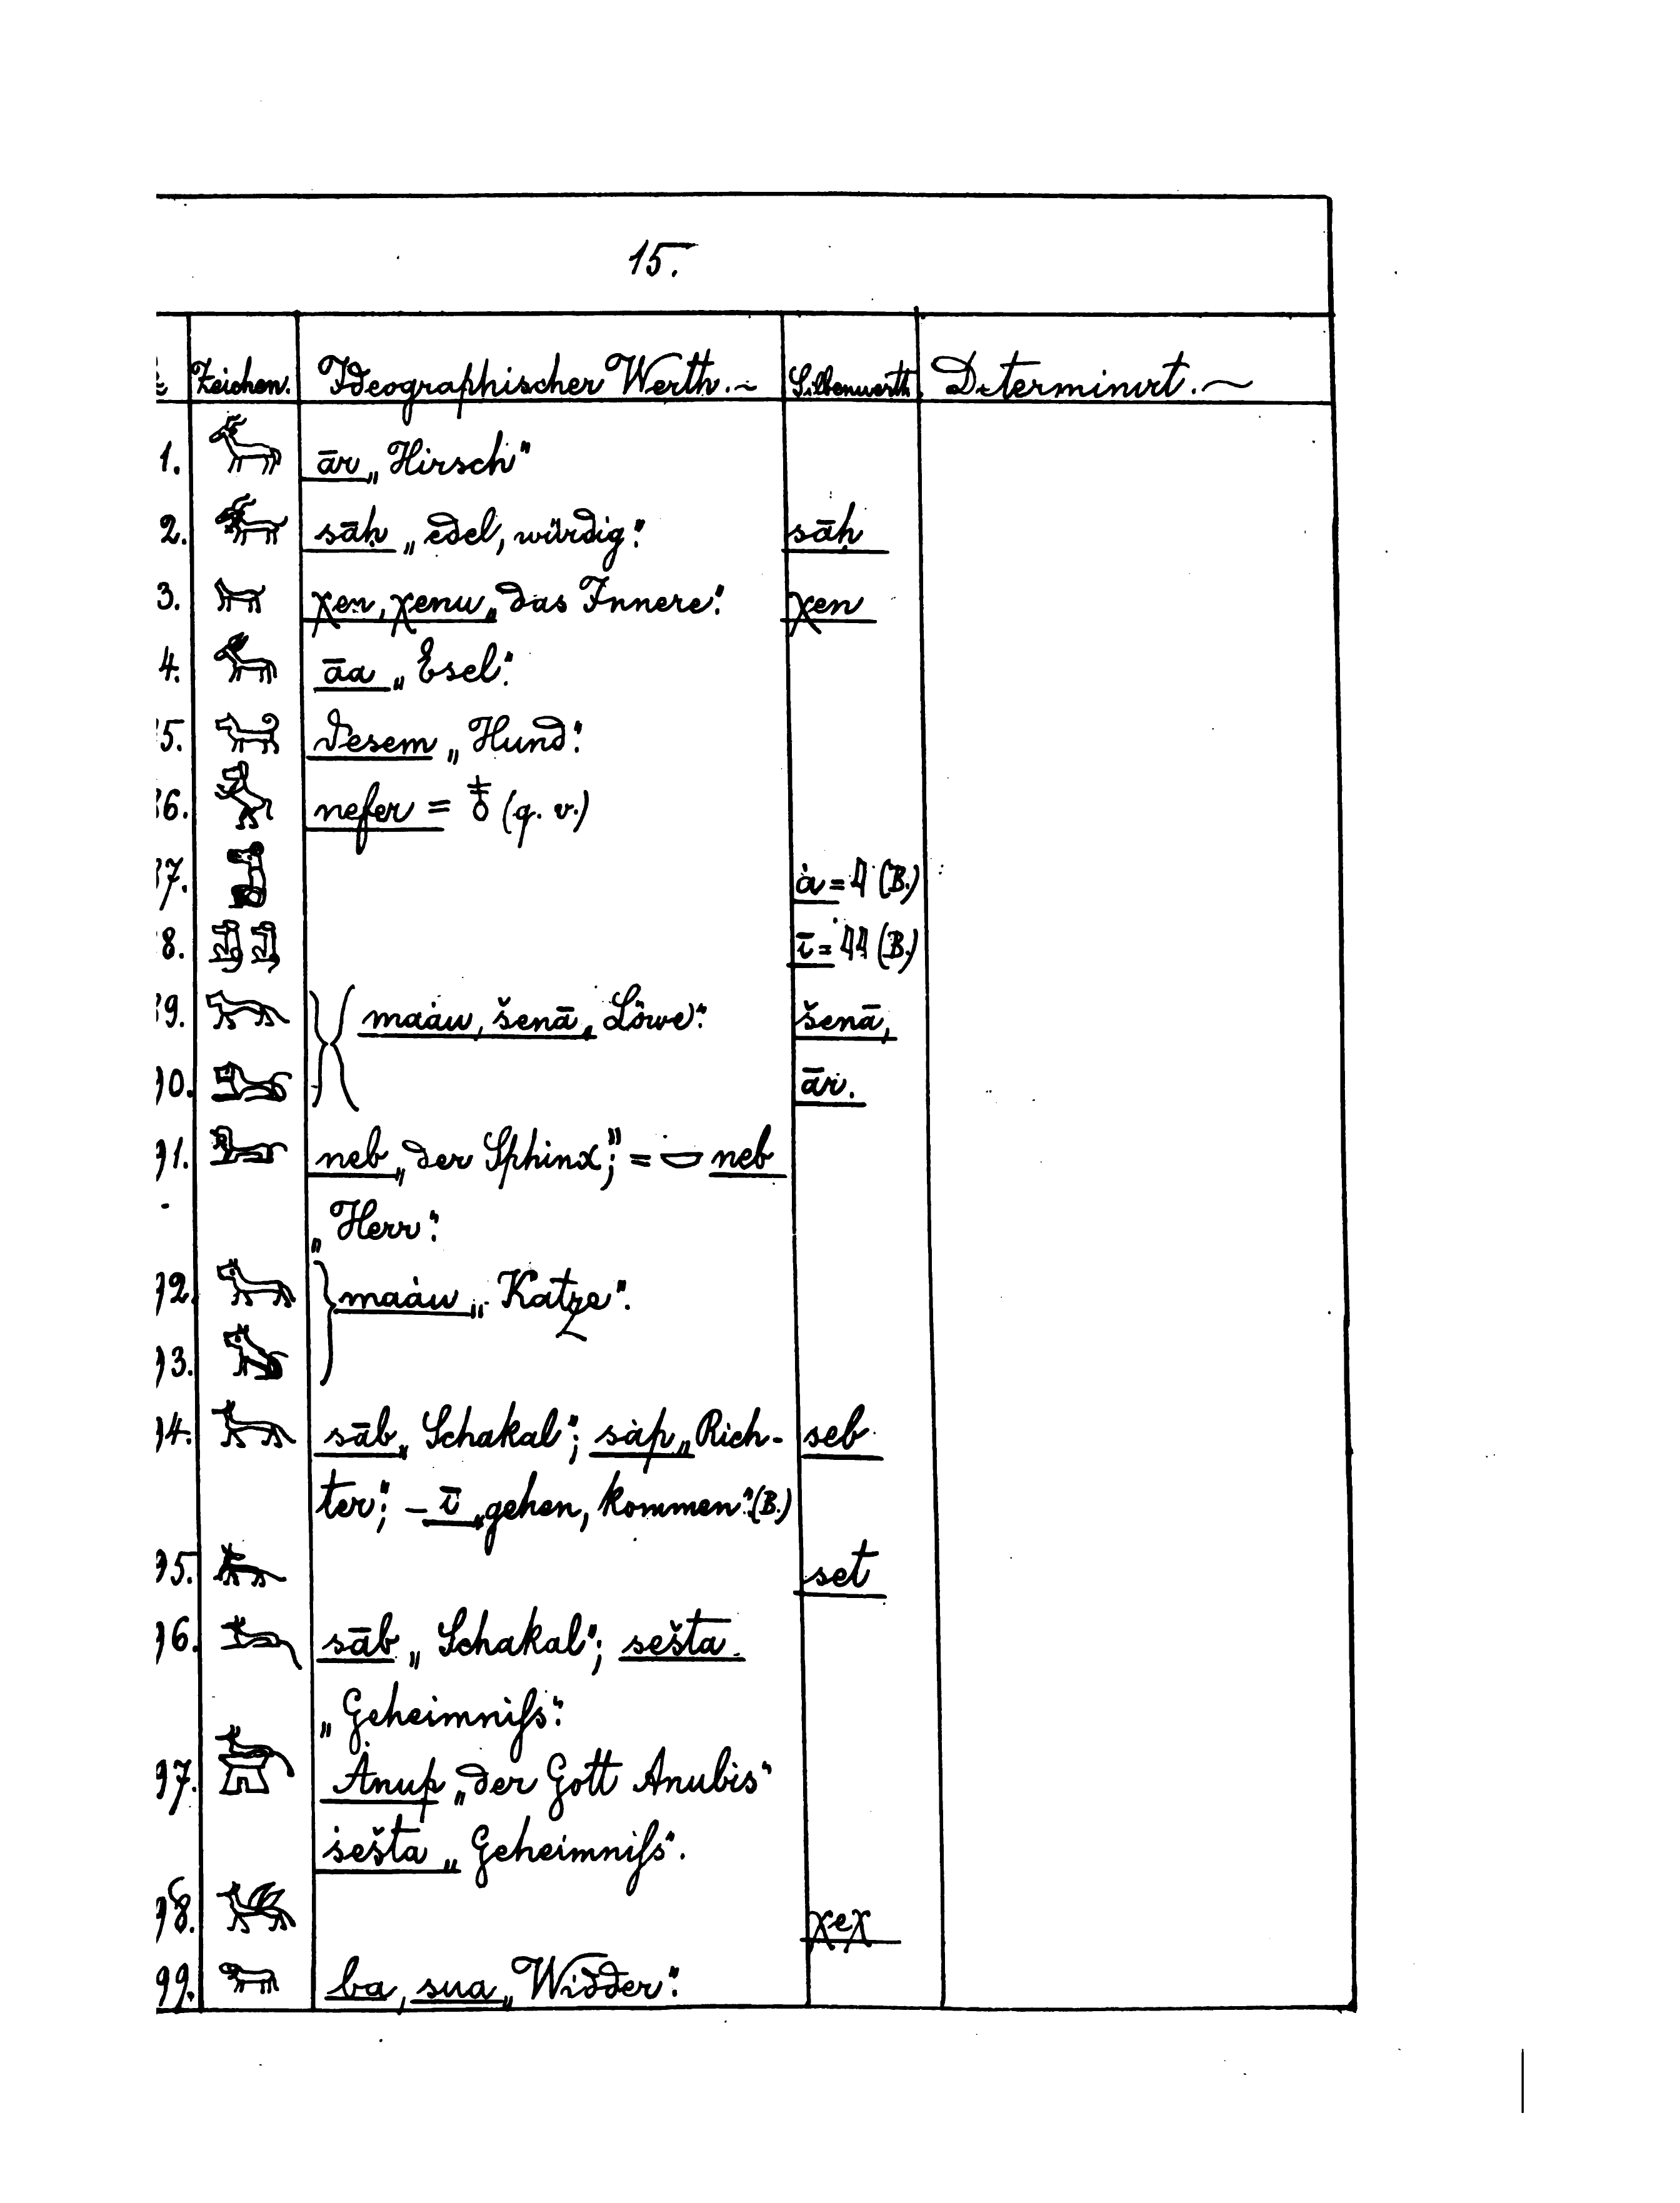 15.
Zeichen. Ideographischer Werth. Silbenwerth Determinirt.
1. ār „Hirsch"
2. sāḥ „edel, würdig". sāḥ
3. χen, χenu „das Innere". χen
4. āa „Esel".
5. Tesem „Hund".
6. nefer = 𓄤 (q. v.)
7. ȧ = 𓇋 (B.)
8. ī = 𓇋𓇋 (B.)
9. maȧu, šenā „Löwe". šenā,
10. ār.
91. neb „der Sphinx"; = 𓎟 neb
„Herr".
92. maȧu „Katze".
93.
94. sāb „Schakal"; sȧp „Rich- seb
ter"; – ī „gehen, kommen". (B.)
95. set
96. sāb „Schakal"; sešta
„Geheimniſs".
97. Ȧnup „der Gott Anubis"
sešta „Geheimniſs".
98. χeχ
99. ba, sua „Widder".